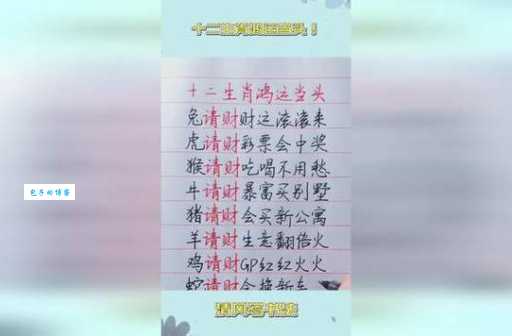 十二生肖鸿运当头！
十二生肖鸿运当头
兔请财财运滚滚来
虎请财彩票会中奖
猴请财吃喝不用愁
牛请财暴富买别墅
猪请财会买新公寓
羊请财生意翻倍火
鸡请财GP红红火火
蛇请财会换新车
包子的博客